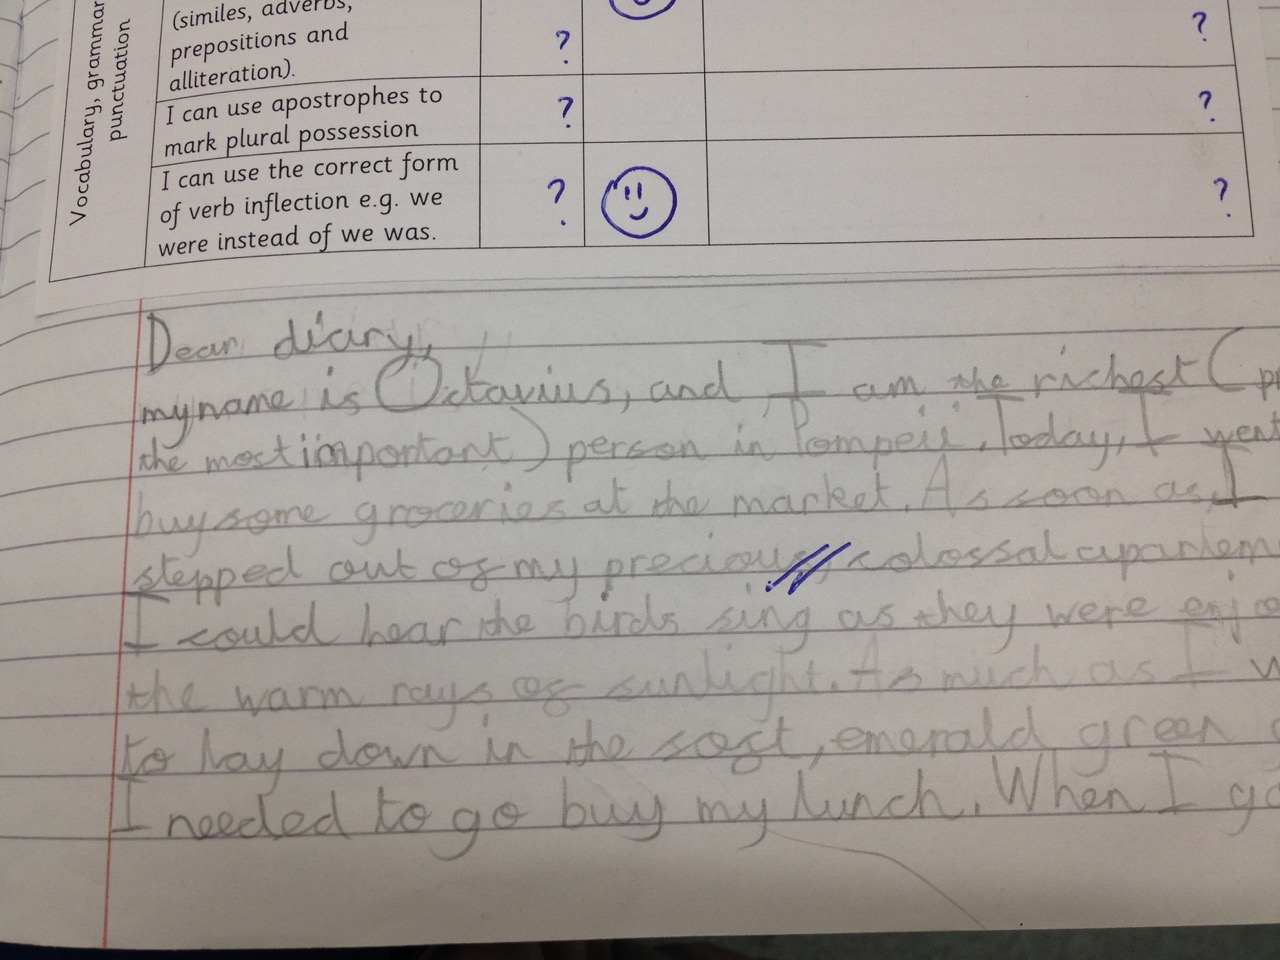 Vocabulary, grammar
punctuation
(similes, adverbs,
prepositions and
alliteration).
? ?
I can use apostrophes to
mark plural possession
? ?
I can use the correct form
of verb inflection e.g. we
were instead of we was.
? ?
Dear diary,
my name is Octavius, and I am the richest (
the most important) person in Pompeii. Today, I went
buy some groceries at the market. As soon as I
stepped out of my precious, colossal
I could hear the birds sing as they were
the warm rays of sunlight. As much as I
to lay down in the soft, emerald green
I needed to go buy my lunch. When I